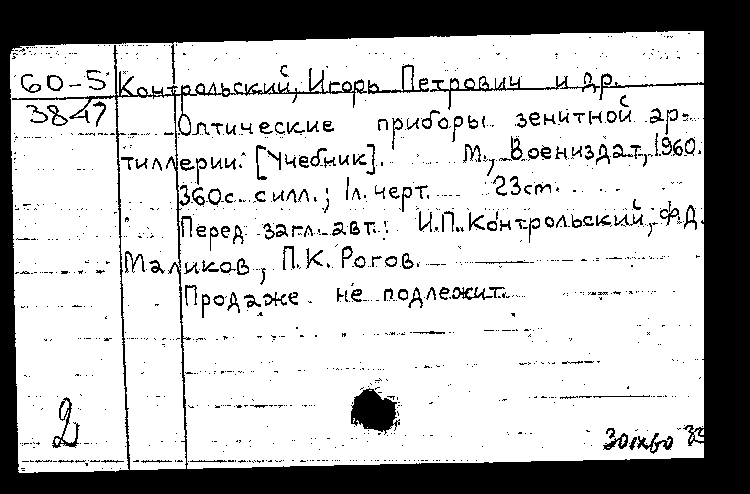 60-5 Контрольский, Игорь Петрович и др.
3847
Оптические приборы зенитной ар-
тиллерии. [Учебник]. М., Воениздат, 1960.
360с. силл.; 1л. черт. 23см.
Перед загл. авт.: И.П. Контрольский, Ф.Д.
Маликов, П.К. Рогов.
Продаже не подлежит.
2